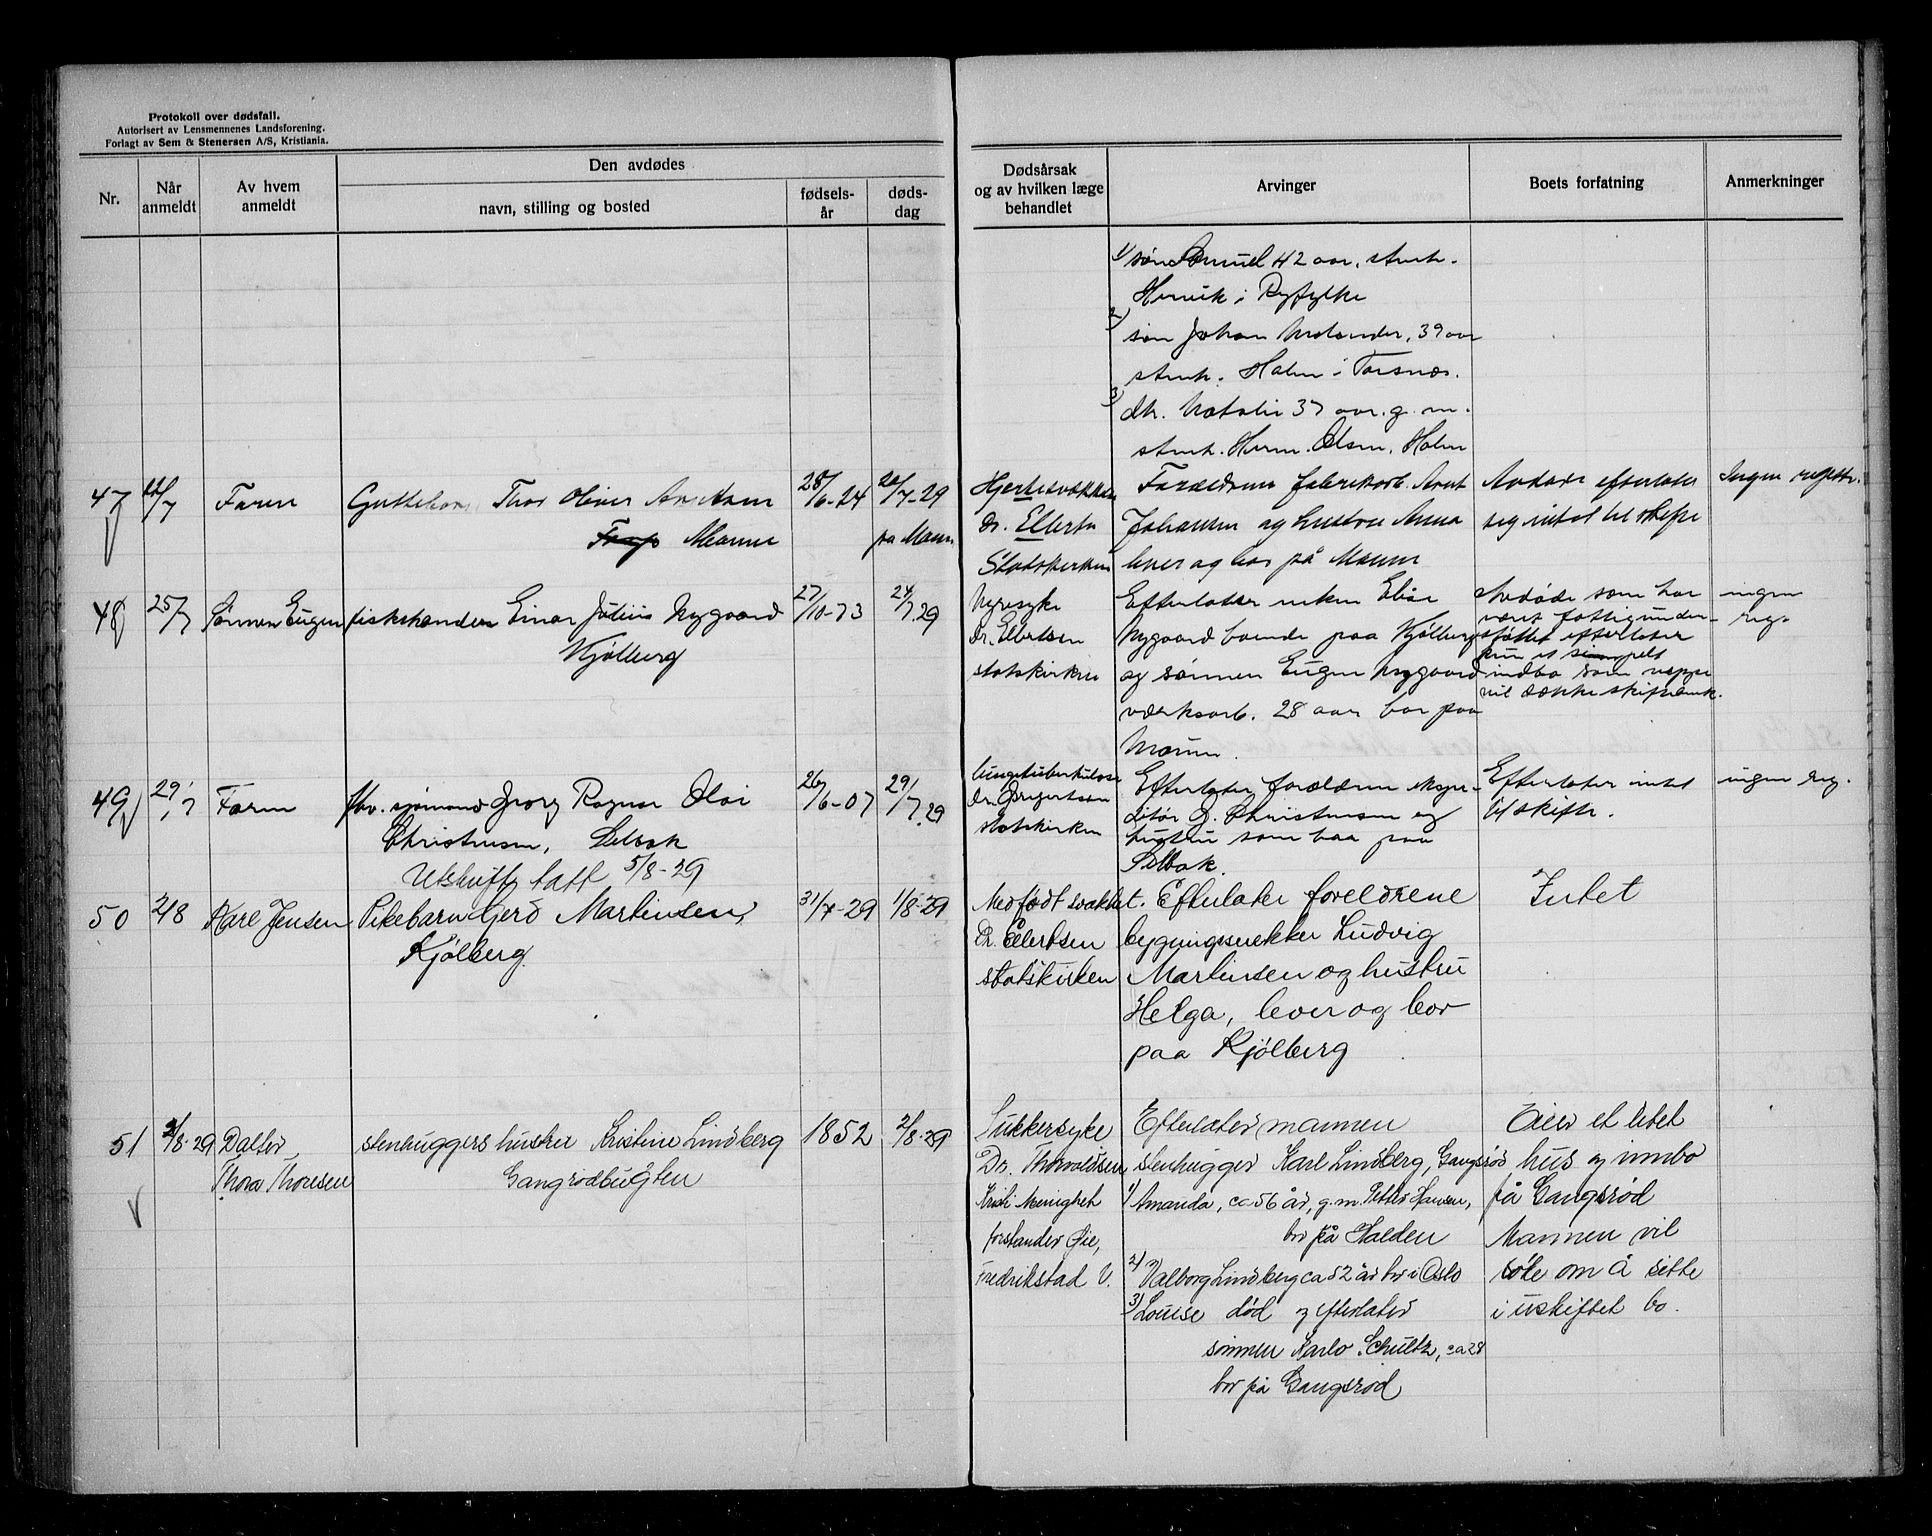 Protokoll over dødsfall.
Autorisert av Lensmennenes Landsforening.
Forlagt av Sem & Stenersen A/S, Kristiania.
Nr.
Når anmeldt
Av hvem anmeldt
Den avdødes
navn, stilling og bosted
fødsels-år
døds-dag
Dødsårsak og av hvilken læge behandlet
Arvinger
Boets forfatning
Anmerkninger
1) søn Samuel 42 aar, stenh.
i Ryfylke
2)
søn Johan 39 aar
stenh. Holm i Torsnæs.
3)
dtr. Natalie 37 aar. g. m.
stenh. Herm. Olsen, Holm
47
Faren
Guttebarn Thor Oliver
28/6-24
/7-29
Hjertesvækkelse
Forældrene fabrikarb.
Avdøde efterlater
Ingen
Johansen og hustru Anna
sig intet til skifte
Statskirken
lever og bor på
48
25/7
Sønnen Eugen
fiskehandler Einar Julius Nygaard
Kjølberg
27/10-73
24/7.29
Nyresyke
Dr. Ellertsen
statskirken
Efterlater enken
Nygaard boende paa Kjølberg
og sønnen Eugen Nygaard
verksarb. 28 aar bor paa
Avdøde som har
været fattigunder-
støttet efterlater
kun et simpelt
indbo som neppe
vil dække skifteomk.
ingen
reg.
49
29/7
Faren
fhv. sjømand Georg Ragnar Olai
Christensen, Selbak
Utskrift tatt 5/8-29
26/6-07
29/7.29
lungetuberkulose
Dr. Gregertsen
statskirken
Efterlater forældrene ekspe-
ditør Christensen og
hustru som bor paa
Selbak.
Efterlater intet
til skifte.
ingen reg.
50
2/8
Kare Jensen
Pikebarn Gerd Martinsen,
Kjølberg
31/7-29
1/8-29
Medfødt svakhet.
Dr. Ellertsen
statskirken
Efterlater foreldrene
bygningssnekker Ludvig
Martinsen og hustru
Helga, lever og bor
paa Kjølberg
Intet
51
2/8-29
Datter
Thora Thoresen
stenhuggers hustru Kristine Lindberg
Gangrødbugten
1852
2/8-29
Sukkersyke
Dr. Thorvaldsen
Kristi Menighet
forstander Øie,
Fredrikstad V.
Efterlater mannen
stenhugger Karl Lindberg, Gangsrød
1) Amanda, ca 56 år, g.m. Petter Hansen,
bor på Halden
2) Valborg Lindberg ca 52 år bor i Oslo
3) Louise død og efterlater
sønnen Karlo Schultz, ca 28
bor på Gangsrød
Eier et litet
hus og innbo
på Gangsrød
Mannen vil
søke om å sitte
i uskiftet bo.